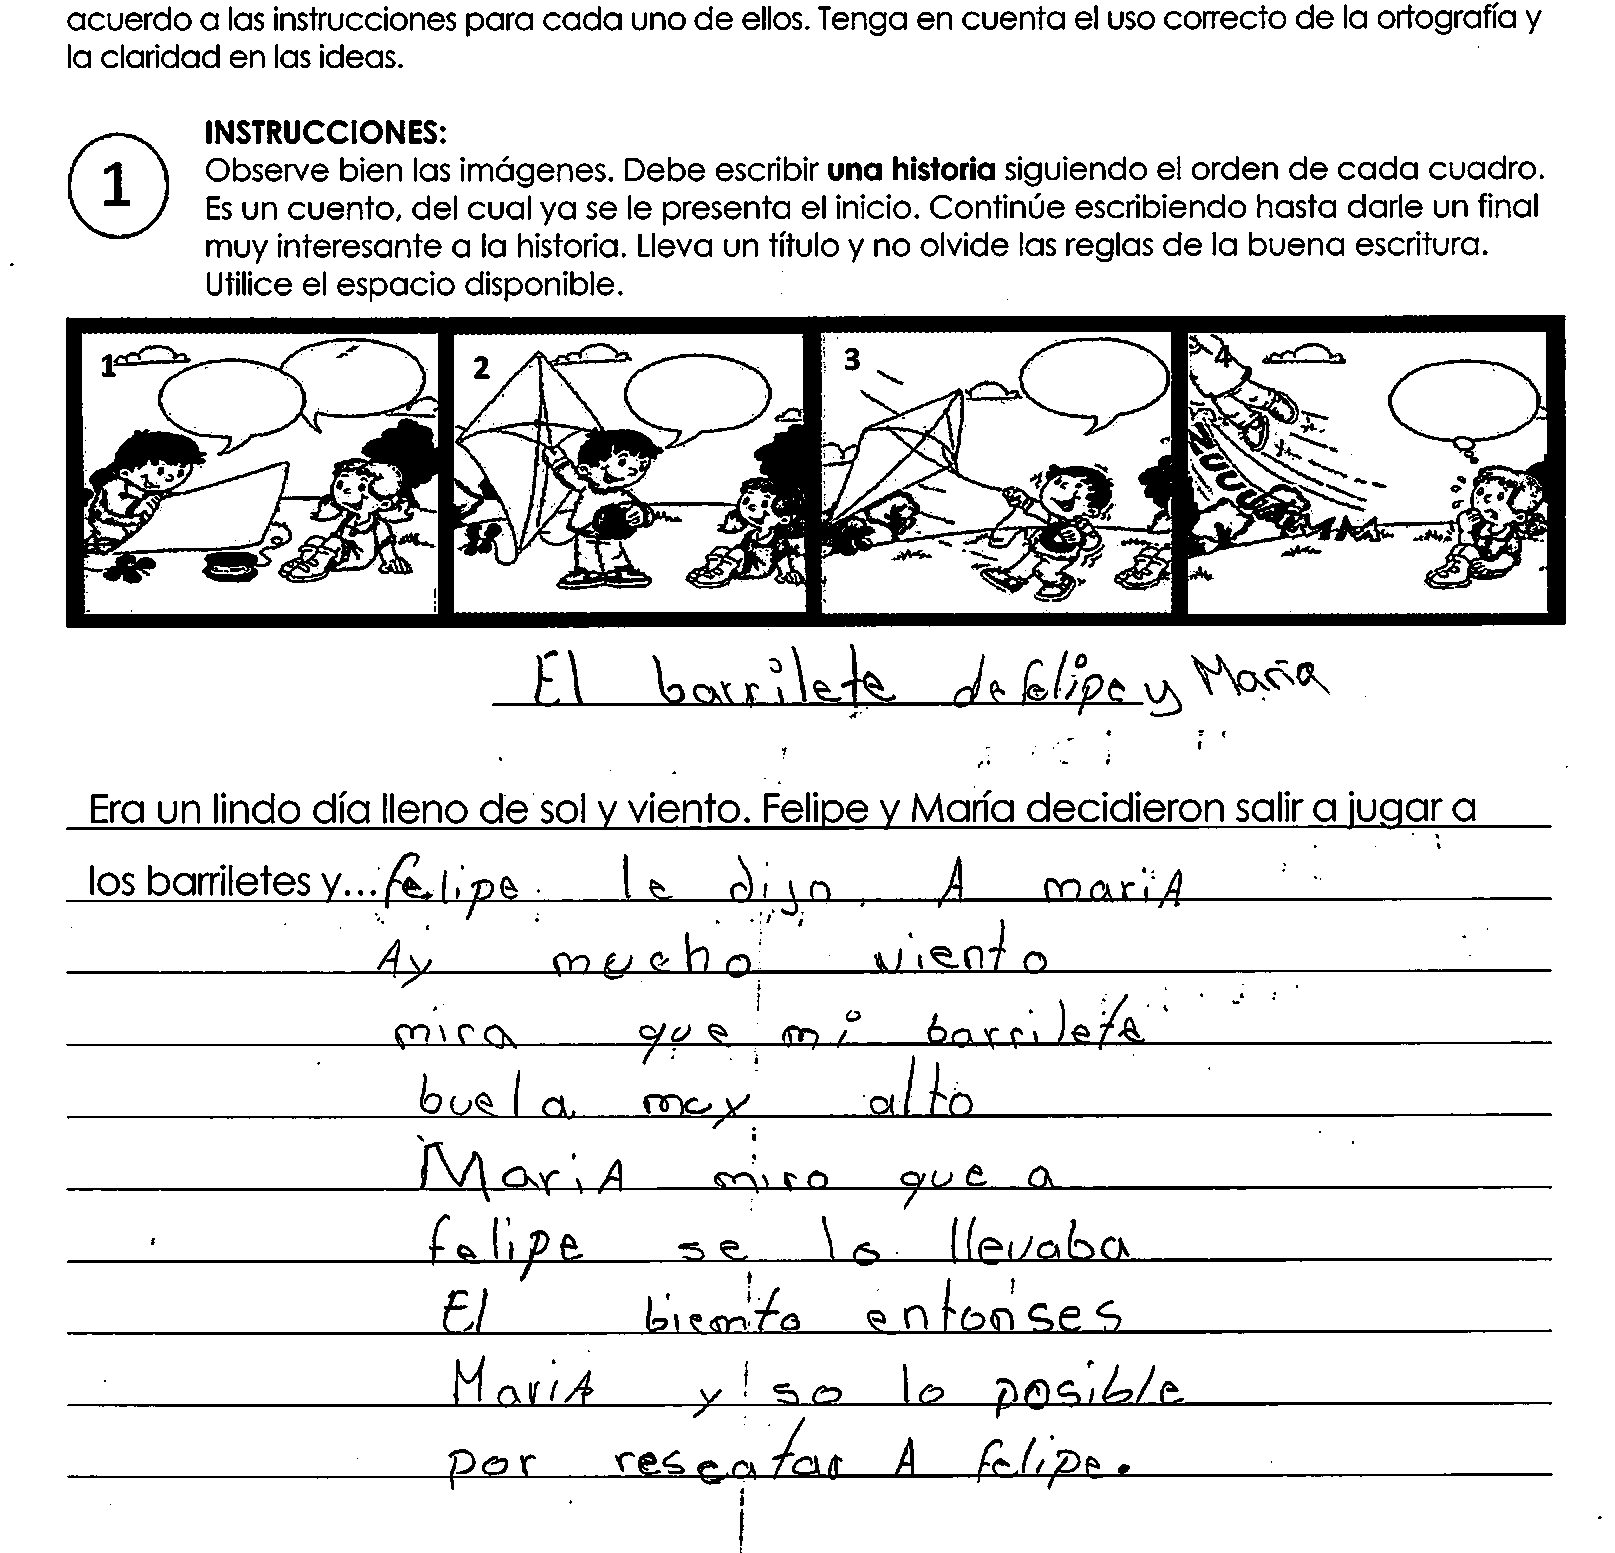 acuerdo a las instrucciones para cada uno de ellos. Tenga en cuenta el uso correcto de la ortografía y
la claridad en las ideas.
1
INSTRUCCIONES:
Observe bien las imágenes. Debe escribir una historia siguiendo el orden de cada cuadro.
Es un cuento, del cual ya se le presenta el inicio. Continúe escribiendo hasta darle un final
muy interesante a la historia. Lleva un título y no olvide las reglas de la buena escritura.
Utilice el espacio disponible.
1 2 3 4
ZUUUU
El barrilete de felipe y María
Era un lindo día lleno de sol y viento. Felipe y María decidieron salir a jugar a
los barriletes y... felipe le dijo A mariA
Ay mucho viento
mira que mi barrilete
buela muy alto
MariA miro que a
felipe se lo llevaba
El biemto entonses
MariA y so lo posible
por rescatar A felipe.